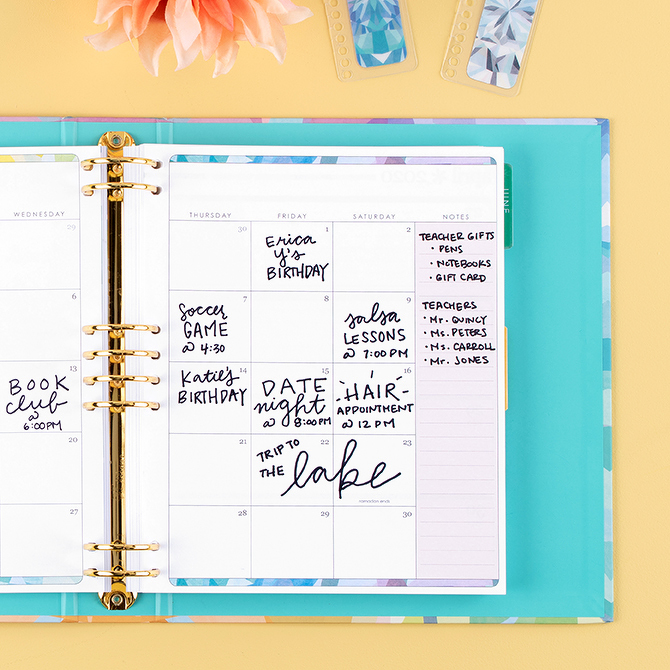 WEDNESDAY
29
6
13
BOOK
club
@
6:00PM
20
27
THURSDAY FRIDAY SATURDAY NOTES
30 1 2
Erica
Y's
BIRTHDAY
7 8 9
Soccer
GAME
@ 4:30
Salsa
LESSONS
@ 7:00 PM
14 15 16
Katie's
BIRTHDAY
DATE
night
@ 8:00PM
HAIR
APPOINTMENT
@ 12 PM
21 22 23
TRIP TO
THE lake
28 29 30
TEACHER GIFTS
• PENS
• NOTEBOOKS
• GIFT CARD
TEACHERS
• Mr. QUINCY
• Ms. PETERS
• Ms. CARROLL
• Mr. JONES
JUNE